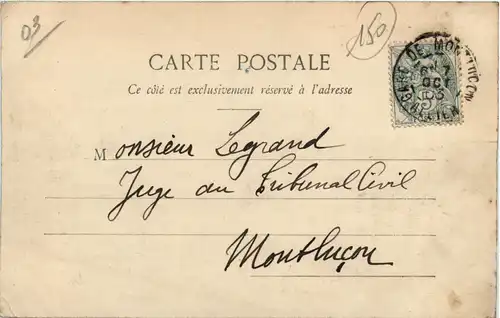 03
150
CARTE POSTALE
Ce côté est exclusivement réservé à l'adresse
GARE DE MONTLUÇON
OCT
5
ALLIER
Monsieur Legrand
Juge au Tribunal Civil
Montluçon